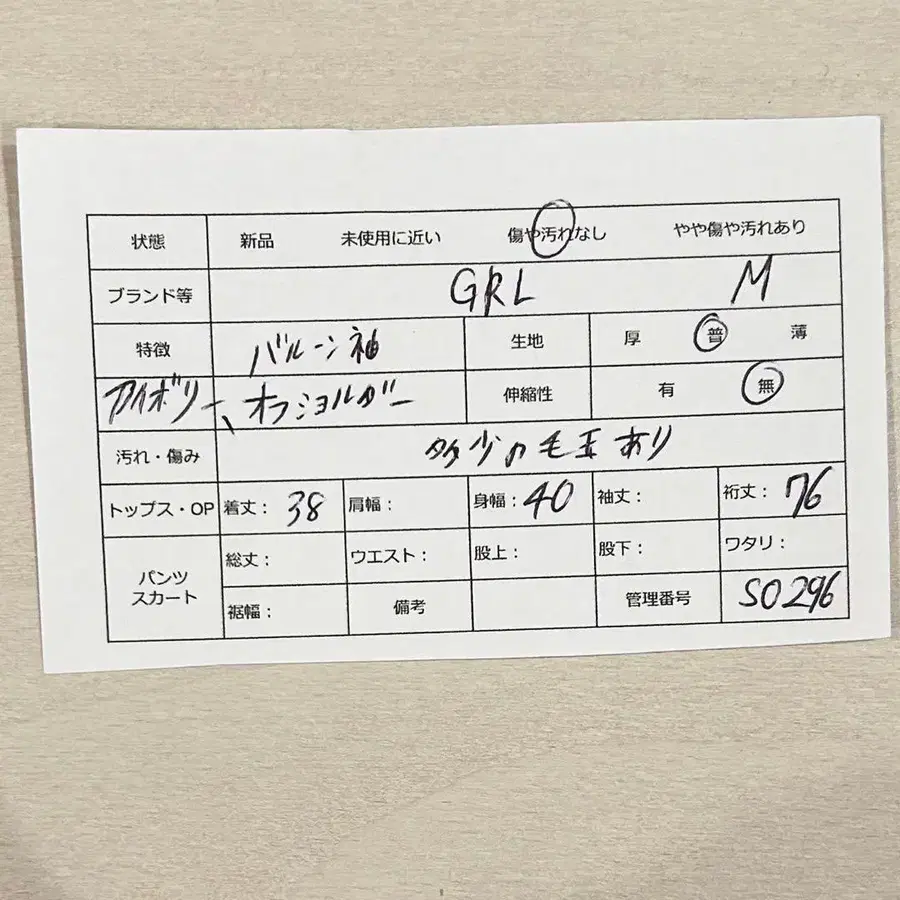 状態 新品 未使用に近い 傷や汚れなし やや傷や汚れあり
ブランド等 GRL M
特徴 バルーン袖 生地 厚 普 薄
アイボリー、オフショルダー 伸縮性 有 無
汚れ・傷み 多少の毛玉あり
トップス・OP 着丈: 38 肩幅: 身幅: 40 袖丈: 裄丈: 76
パンツ 総丈: ウエスト: 股上: 股下: ワタリ:
スカート 裾幅: 備考 管理番号 SO296